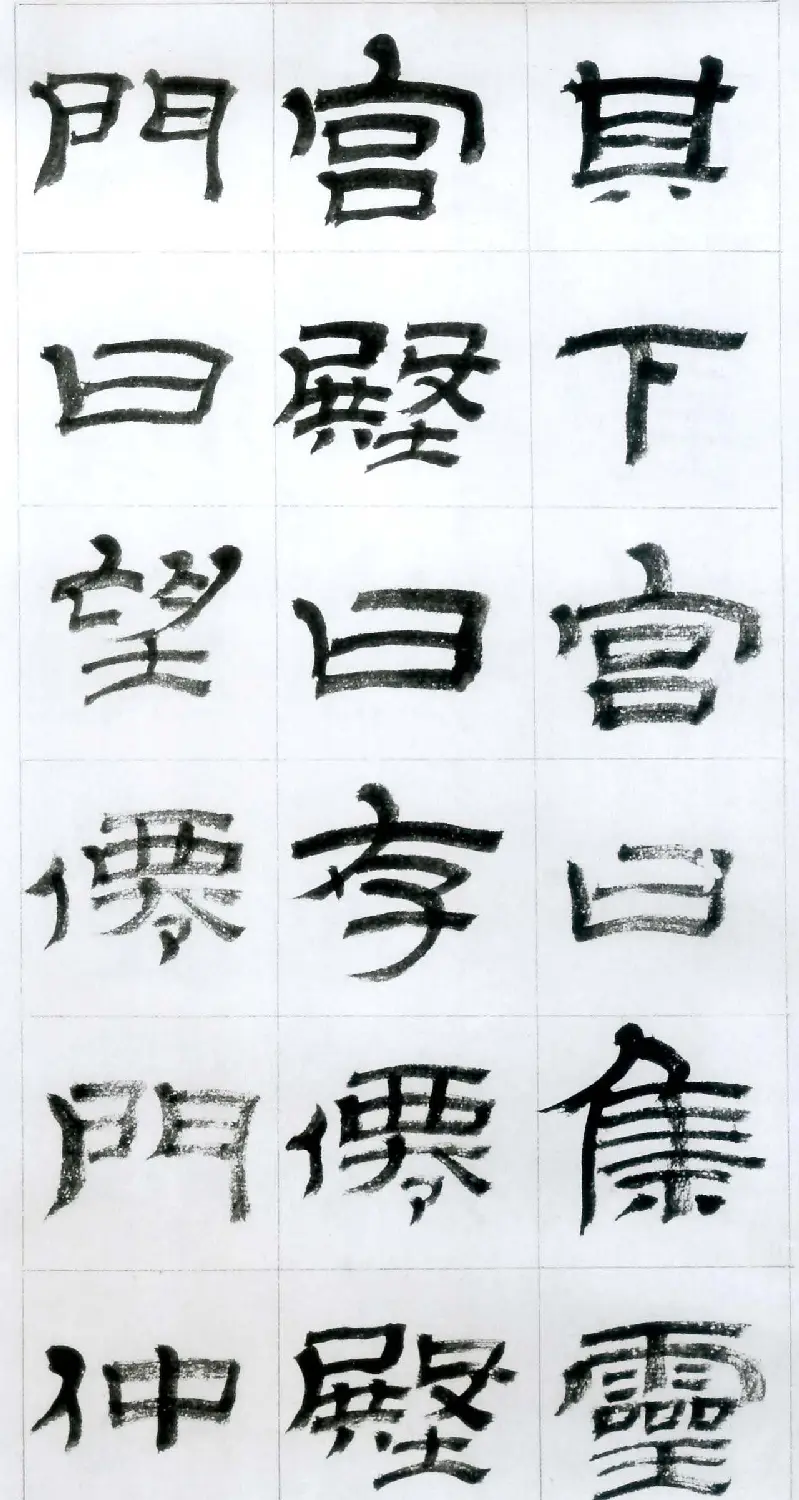 其下宮曰集靈
宮壂曰存僊壂
門曰望僊門仲